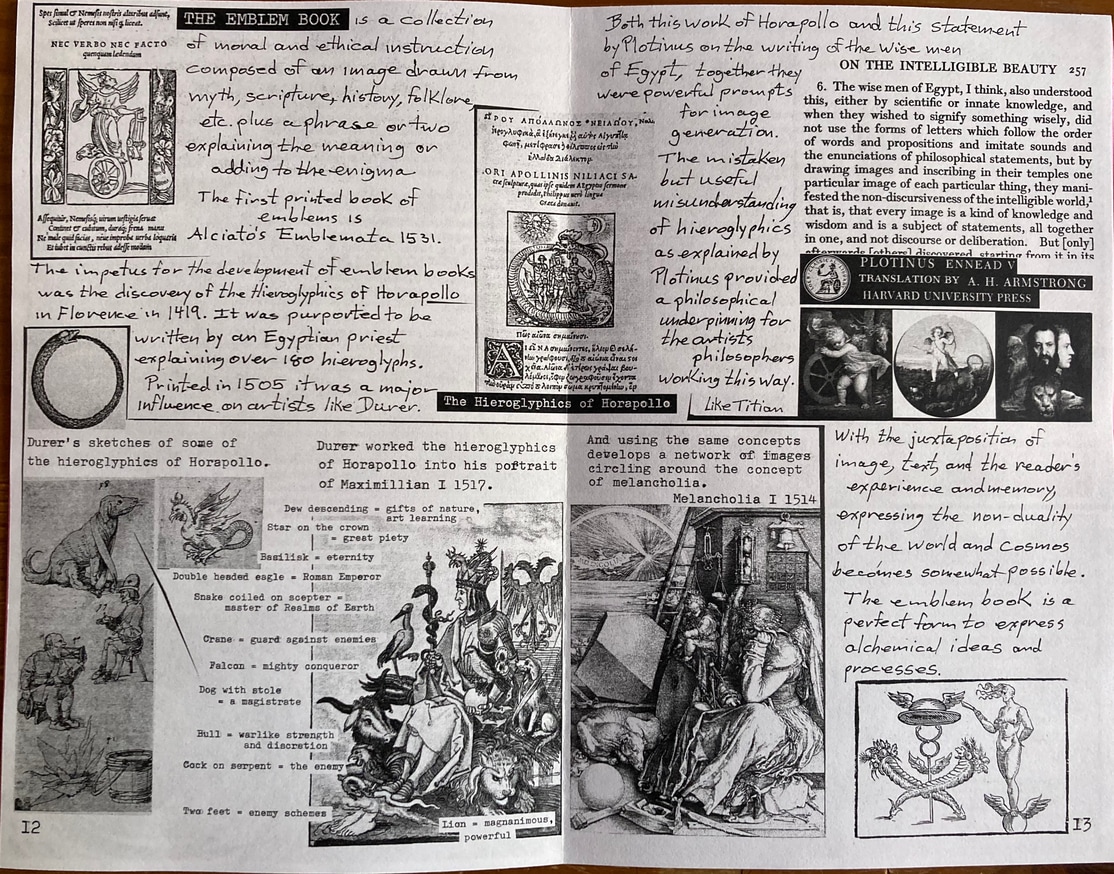 Spes simul & Nemesis nostris altaribus adsunt,
Scilicet ut speres non nisi q̃ liceat.
NEC VERBO NEC FACTO
quenquam lædendum
Assequitur, Nemesisq; uirum uestigia seruat
Continet & cubitum, duraq; frena manu
Ne male quid facias, neue improba uerba loquaris
Et iubet in cunctis rebus adesse modum
THE EMBLEM BOOK is a collection
of moral and ethical instruction
composed of an image drawn from
myth, scripture, history, folklore,
etc. plus a phrase or two
explaining the meaning or
adding to the enigma
The first printed book of
emblems is
Alciato's Emblemata 1531.
The impetus for the development of emblem books
was the discovery of the Hieroglyphics of Horapollo
in Florence in 1419. It was purported to be
written by an Egyptian priest
explaining over 180 hieroglyphs.
Printed in 1505 it was a major
influence on artists like Durer.
ORI APOLLINIS NILIACI SA-
The Hieroglyphics of Horapollo
Both this work of Horapollo and this statement
by Plotinus on the writing of the Wise men
of Egypt, together they
were powerful prompts
for image
generation.
The mistaken
but useful
misunderstanding
of hieroglyphics
as explained by
Plotinus provided
a philosophical
underpinning for
the artists
philosophers
working this way.
Like Titian
ON THE INTELLIGIBLE BEAUTY 257
6. The wise men of Egypt, I think, also understood
this, either by scientific or innate knowledge, and
when they wished to signify something wisely, did
not use the forms of letters which follow the order
of words and propositions and imitate sounds and
the enunciations of philosophical statements, but by
drawing images and inscribing in their temples one
particular image of each particular thing, they mani-
fested the non-discursiveness of the intelligible world,¹
that is, that every image is a kind of knowledge and
wisdom and is a subject of statements, all together
in one, and not discourse or deliberation. But [only]
afterwards [others] discovered, starting from it in its
PLOTINUS ENNEAD V
TRANSLATION BY A. H. ARMSTRONG
HARVARD UNIVERSITY PRESS
Durer's sketches of some of
the hieroglyphics of Horapollo.
Durer worked the hieroglyphics
of Horapollo into his portrait
of Maximillian I 1517.
Dew descending = gifts of nature,
art learning
Star on the crown
= great piety
Basilisk = eternity
Double headed eagle = Roman Emperor
Snake coiled on scepter =
master of Realms of Earth
Crane = guard against enemies
Falcon = mighty conqueror
Dog with stole
= a magistrate
Bull = warlike strength
and discretion
Cock on serpent = the enemy
Two feet = enemy schemes
Lion = magnanimous,
powerful
12
And using the same concepts
develops a network of images
circling around the concept
of melancholia.
Melancholia I 1514
With the juxtaposition of
image, text, and the reader's
experience and memory,
expressing the non-duality
of the world and cosmos
becomes somewhat possible.
The emblem book is a
perfect form to express
alchemical ideas and
processes.
13